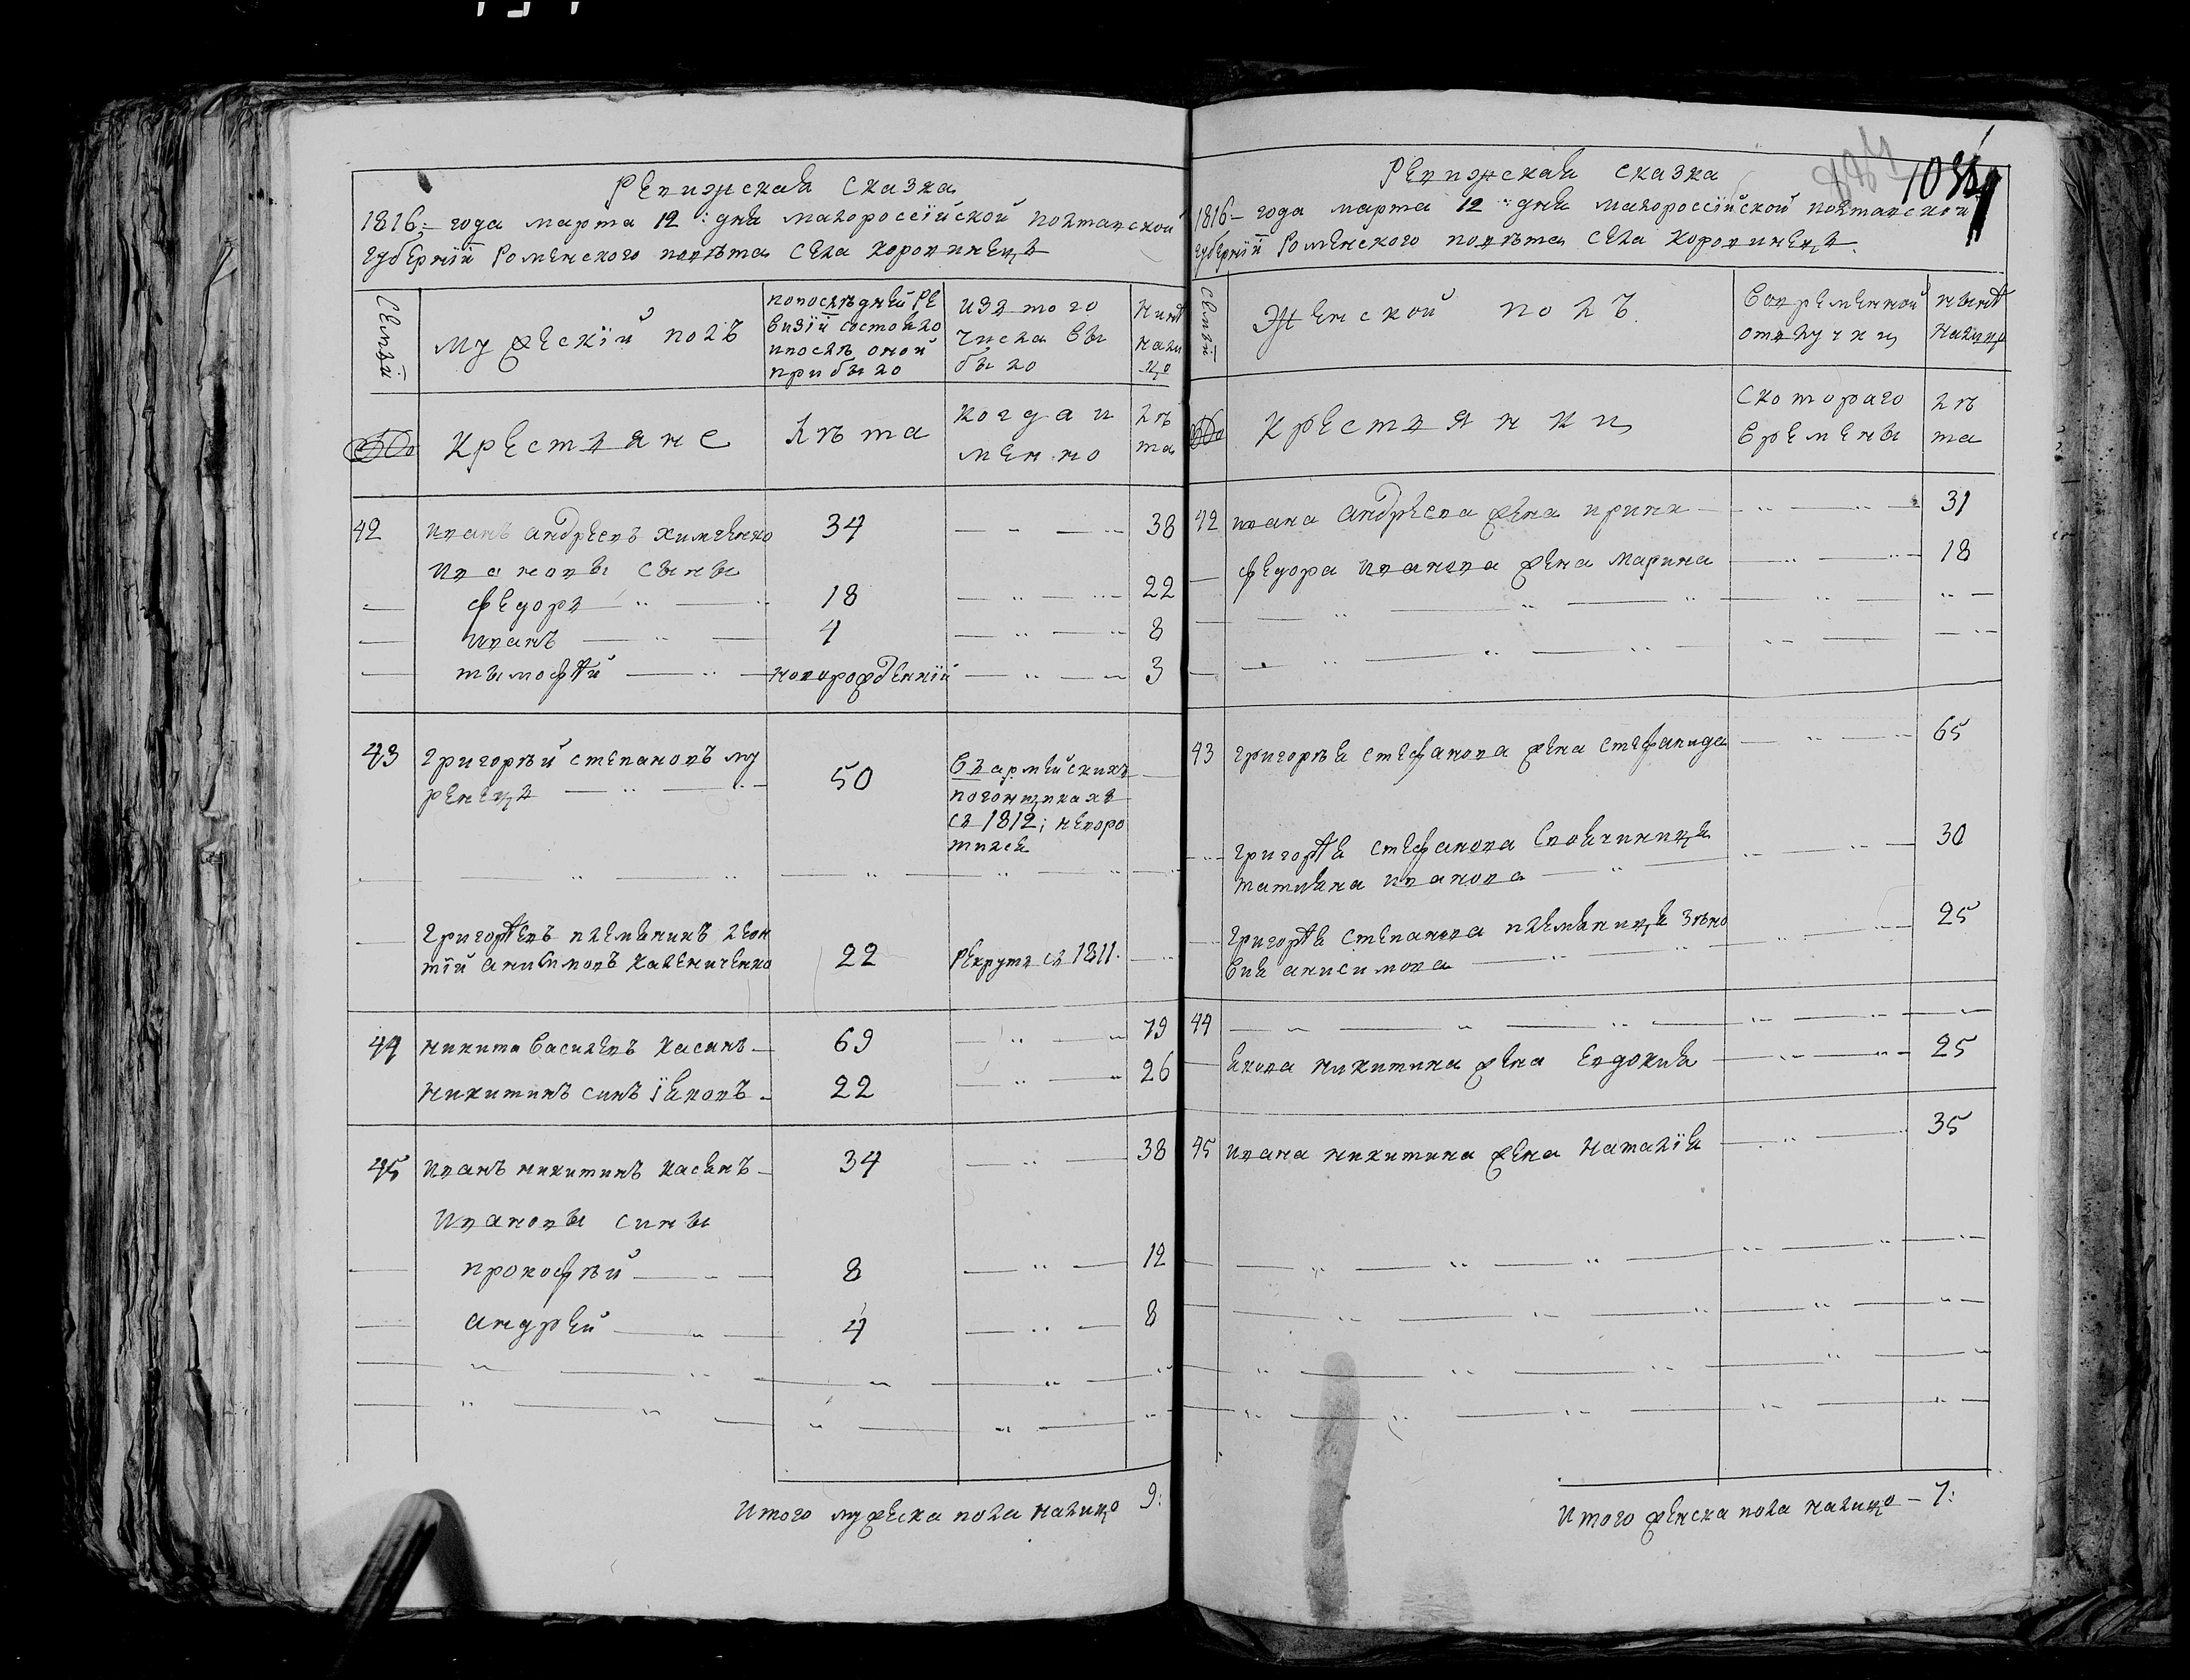 Ревижская сказка
1816: года марта 12: дня малороссїйской полтавской
губернїи Роменского повѣта села коровинецъ
Семьй
мужескїй полъ
попослѣдней ре
визїи состояло
ипослѣ оной
прибыло
изъ того
числа вы
было
Нинѣ
нали
цо
№
крестьяне
лѣта
когда и
менно
лѣ
та
42 иванъ андреевъ химченко 34 38
Ивановы сыны
федоръ 18 22
иванъ 4 8
тымофѣй новорожденнїй 3
43 григорѣй степановъ му
ренецъ 50
въ армейскихъ
погонщикахъ
съ 1812; неворо
тился
григорѣевъ племянникъ леон
тїй анисимовъ каленичемко 22 рекрутъ съ 1811.
44 никита василевъ касянъ 69 79
никитинъ синъ їяковъ 22 26
45 иванъ никитинъ касянъ 34 38
Ивановы сины
прокофѣй 8 12
андрей 4 8
Итого мужеска пола налицо 9:
Ревижская сказка
1034
1816 года марта 12: дня малороссїйской полтавской
губернїи Роменского повѣта села коровинецъ.
Семьй
Женской полъ
Вовременной
отлучки
нынѣ
налицо
№
крестьянки
Скотораго
времены
лѣ
та
42 ивана андреева жена ирина 31
федора иванова жена марина 18
43 григорѣя стефанова жена стефанида 65
григорѣя стефанова своячиница
татияна иванова 30
григорѣя степанова племяница зѣно
вия анисимова 25
44
якова никитина жена евдокия 25
45 ивана никитина жена наталїя 35
Итого женска пола налицо – 7: